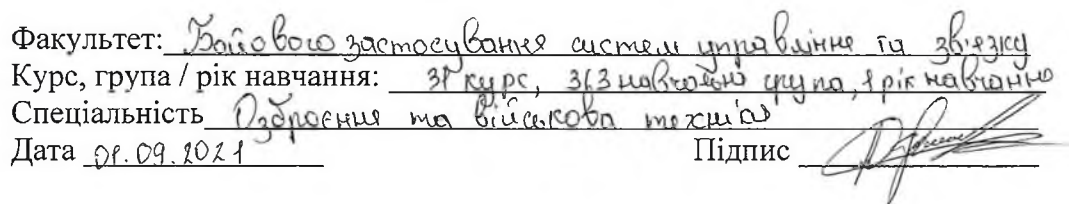 Факультет: Бойового застосування систем управління та зв'язку
Курс, група / рік навчання: 31 курс, 313 навчальна група, 1 рік навчання
Спеціальність Озброєння та військова техніка
Дата 01.09.2021 Підпис